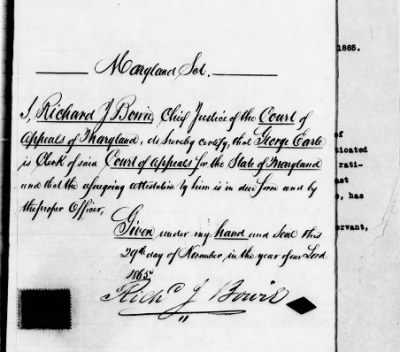 Maryland Sct.
I, Richard J Bowie, Chief Justice of the Court of
Appeals of Maryland, do hereby certify, that George Earle
is Clerk of said Court of Appeals for the State of Maryland
and that the aforegoing attestation by him is in due form and by
the proper Officer,
Given under my hand and seal this
29th day of November, in the year of our Lord
1865
Richd J Bowie
1865.
of
ticated
rati-
ast
, has
rvant,